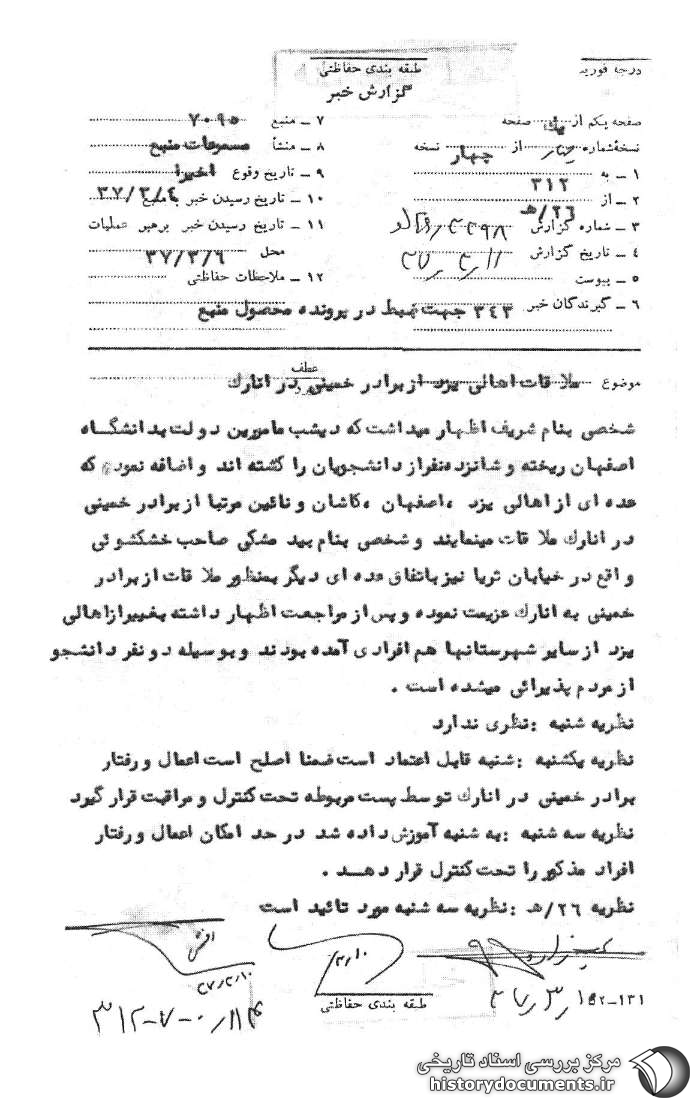 درجه فوریت
طبقه بندی حفاظتی
گزارش خبر
صفحه یکم از یک صفحه
نسخهٔ شماره چهار از چهار نسخه
۱ ــ به ۳۱۲
۲ ــ از ۲۶/هـ
۳ ــ شماره گزارش
۴ ــ تاریخ گزارش ۳۷/۳/۱۱
۵ ــ پیوست
۶ ــ گیرندگان خبر ۳۴۳ جهت ضبط در پرونده محصول منبع
۷ ــ منبع ۷۰۹۵
۸ ــ منشأ مسموعات منبع
۹ ــ تاریخ وقوع اخیرا
۱۰ ــ تاریخ رسیدن خبر بمنبع ۳۷/۳/۴
۱۱ ــ تاریخ رسیدن خبر برهبر عملیات
محل ۳۷/۳/۶
۱۲ ــ ملاحظات حفاظتی
عطف
موضوع ملاقات اهالی یزد از برادر خمینی در انارك
شخصی بنام شریف اظهار میداشت که دیشب مامورین دولت بدانشگاه
اصفهان ریخته و شانزده نفر از دانشجویان را کشته اند و اضافه نمود که
عده ای از اهالی یزد ، اصفهان ، کاشان و نائین مرتبا از برادر خمینی
در انارك ملاقات مینمایند و شخصی بنام بید مشکی صاحب خشکشوئی
واقع در خیابان ثریا نیز باتفاق عده ای دیگر بمنظور ملاقات از برادر
خمینی به انارك عزیمت نموده و پس از مراجعت اظهار داشته بغیر از اهالی
یزد از سایر شهرستانها هم افرادی آمده بودند و بوسیله دو نفر دانشجو
از مردم پذیرائی میشده است .
نظریه شنبه : نظری ندارد
نظریه یکشنبه : شنبه قابل اعتماد است ضمنا اصلح است اعمال و رفتار
برادر خمینی در انارك توسط پست مربوطه تحت کنترل و مراقبت قرار گیرد
نظریه سه شنبه : به شنبه آموزش داده شد در حد امکان اعمال و رفتار
افراد مذکور را تحت کنترل قرار دهد .
نظریه ۲۶/هـ : نظریه سه شنبه مورد تائید است
۳/۱۰
۳۷/۳/۱۰
طبقه بندی حفاظتی
۳۱۲-۷-۰/۱۱۴
مرکز بررسی اسناد تاریخی
historydocuments.ir